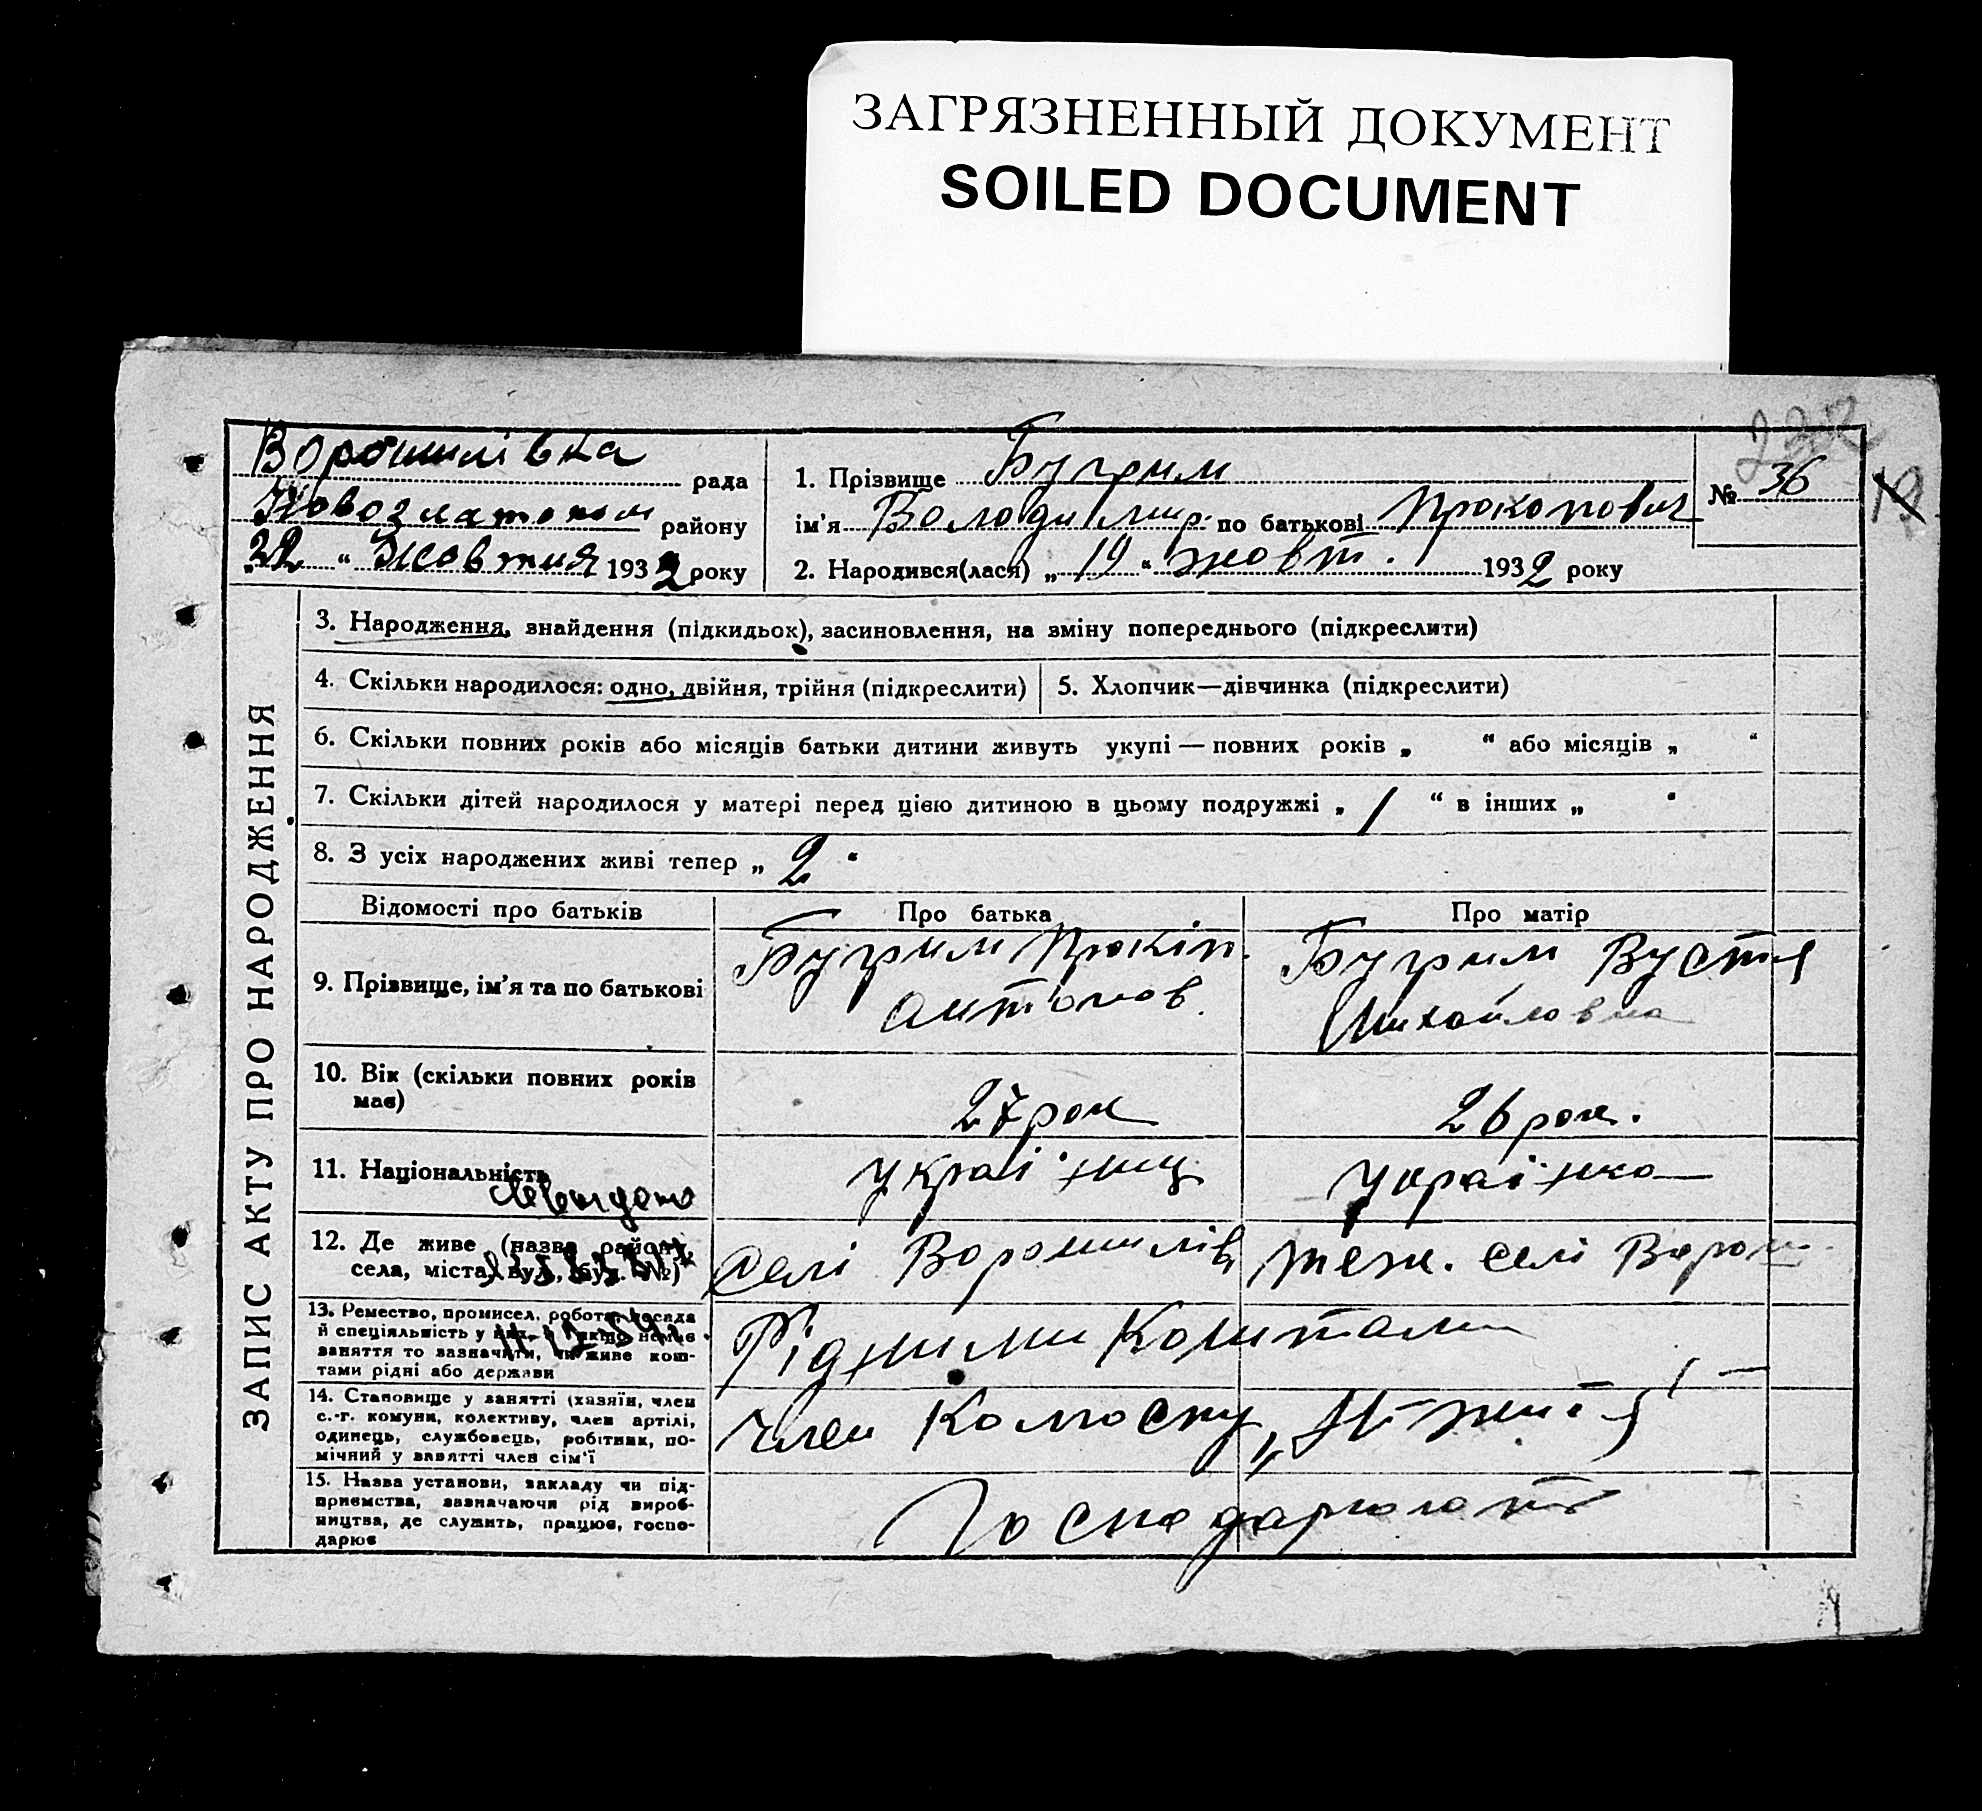 ЗАГРЯЗНЕННЫЙ ДОКУМЕНТ
SOILED DOCUMENT
232
19
Ворошилівка рада
Новозлатопіл району
22 " Жовтня 1932 року
1. Прізвище Бугрим
ім'я Володимир по батькові Прокопович
2. Народився(лася) „ 19 " жовт. 1932 року
№ 36
ЗАПИС АКТУ ПРО НАРОДЖЕННЯ
3. Народження, знайдення (підкидьох), засиновлення, на зміну попереднього (підкреслити)
4. Скільки народилося: одно, двійня, трійня (підкреслити)
5. Хлопчик—дівчинка (підкреслити)
6. Скільки повних років або місяців батьки дитини живуть укупі — повних років „ " або місяців „ "
7. Скільки дітей народилося у матері перед цією дитиною в цьому подружжі „ 1 " в інших „ "
8. З усіх народжених живі тепер „ 2 "
Відомості про батьків
Про батька
Про матір
9. Прізвище, ім'я та по батькові
Бугрим Прокіп.
Антонов.
Бугрим Вустя
Михайловна
10. Вік (скільки повних років
має)
27 рок
26 рок.
11. Національність
україниц
українка
12. Де живе (назва району,
села, міста, вул., буд. №)
селі Ворошилів
теж. селі Ворош
13. Ремество, промисел, робота, посада
й спеціяльність у них, а якщо немає
заняття то зазначити, чи живе кош-
тами рідні або держави
Рідними Коштами
14. Становище у занятті (хазяїн, член
с.-г. комуни, колективу, член артілі,
одинець, службовець, робітник, по-
мічний у занятті член сім'ї
член Колгоспу
15. Назва установи, закладу чи під-
приємства, зазначаючи рід вироб-
ництва, де служить, працює, госпо-
дарює
Господарюють